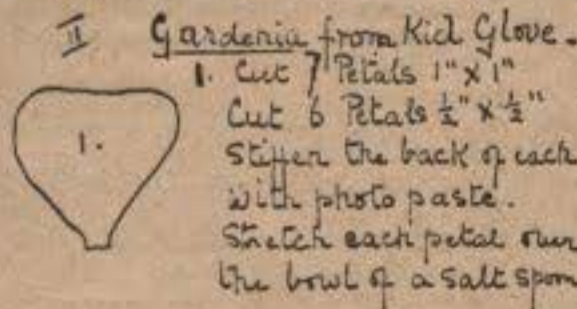 II Gardenia from Kid Glove.
1. Cut 7 Petals 1" x 1"
Cut 6 Petals ½" x ½"
1.
Stiffen the back of each
with photo paste.
Stretch each petal over
the bowl of a salt spoon